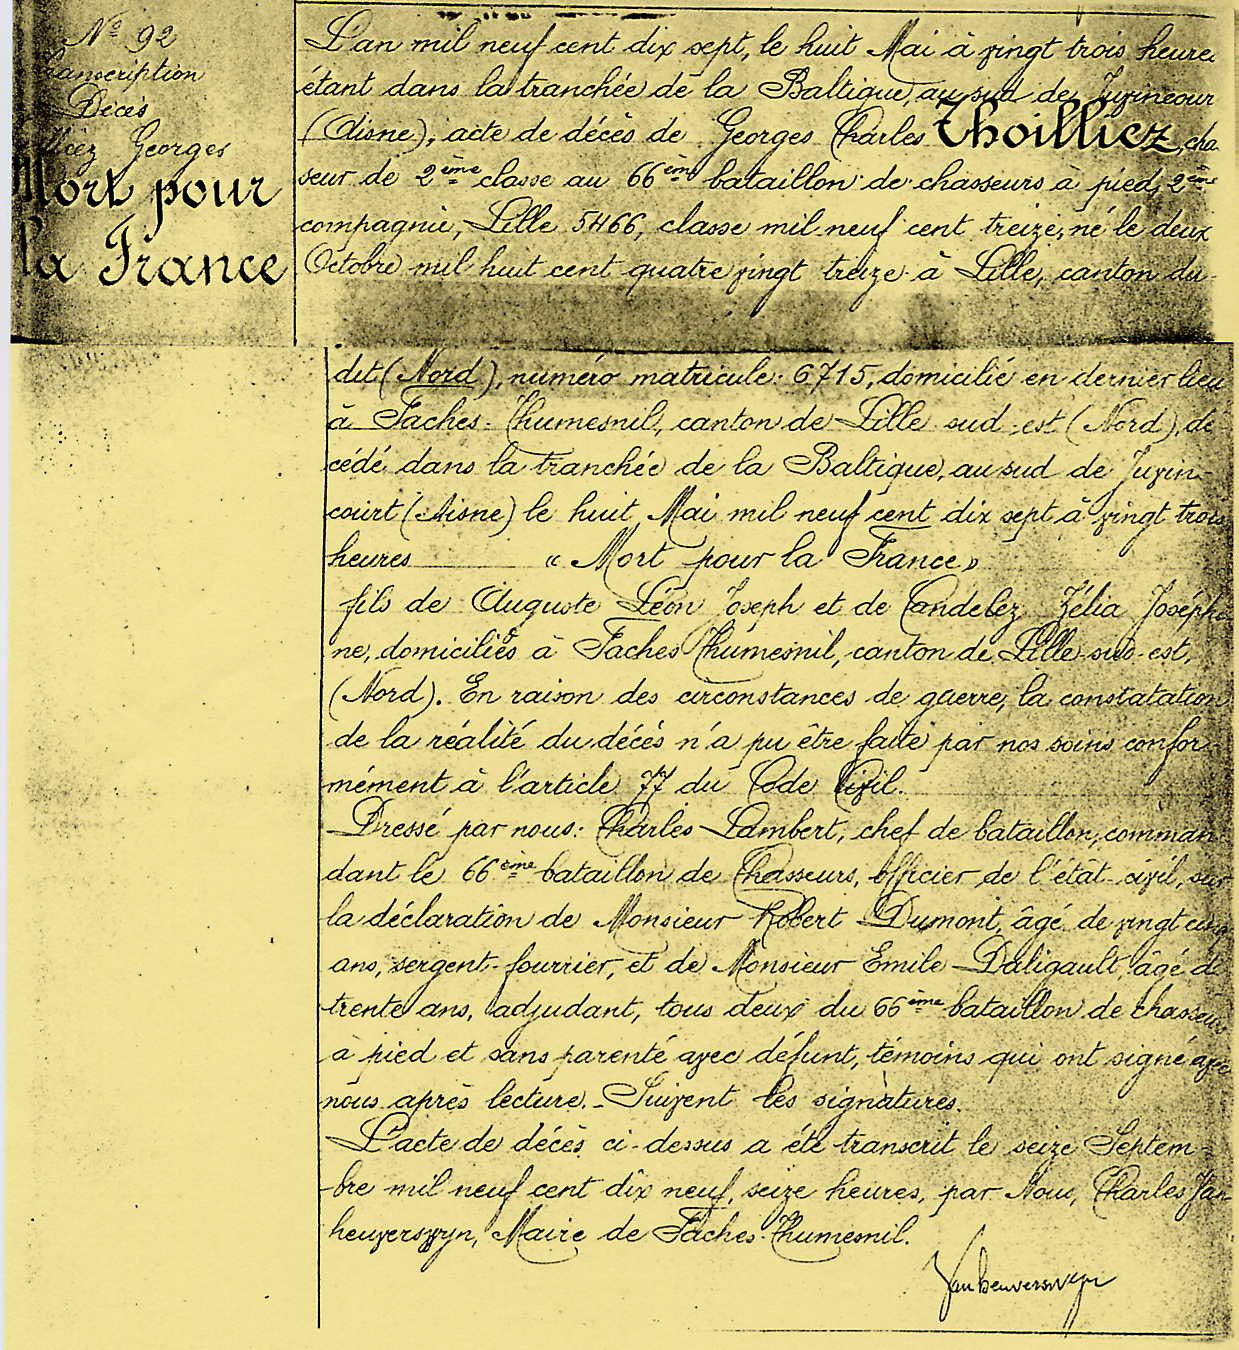 Nº 92
Transcription
Décès
Georges
Mort pour
la France
L'an mil neuf cent dix sept, le huit Mai à vingt trois heures
étant dans la tranchée de la Baltique, au sud de Juvincour
(Aisne), acte de décès de Georges Charles Thoilliez, chas
seur de 2ème classe au 66ème bataillon de chasseurs à pied, 2ème
compagnie, Lille 5466, classe mil neuf cent treize, né le deux
Octobre mil huit cent quatre vingt treize à Lille, canton du
dit (Nord), numéro matricule: 6715, domicilié en dernier lieu
à Faches-Thumesnil, canton de Lille sud-est (Nord), dé
cédé dans la tranchée de la Baltique, au sud de Juvin-
court (Aisne) le huit Mai mil neuf cent dix sept à vingt trois
heures « Mort pour la France »
fils de Auguste Léon Joseph et de Candelez Zélia Joséphi
ne, domiciliés à Faches Thumesnil, canton de Lille-sud-est,
(Nord). En raison des circonstances de guerre, la constatation
de la réalité du décés n'a pu être faite par nos soins confor-
mément à l'article 77 du Code Civil.
Dressé par nous: Charles Lambert, chef de bataillon, comman
dant le 66ème bataillon de Chasseurs, officier de l'état-civil, sur
la déclaration de Monsieur Robert Dumont, âgé de vingt cinq
ans, sergent-fourrier, et de Monsieur Emile Daligault, âgé de
trente ans, adjudant, tous deux du 66ème bataillon de chasseurs
à pied et sans parenté avec défunt, témoins qui ont signé avec
nous après lecture. - Suivent les signatures.
L'acte de décès ci-dessus a été transcrit le seize Septem-
bre mil neuf cent dix neuf, seize heures, par Nous, Charles Van
heuverswyn, Maire de Faches-Thumesnil.
Vanheuverswyn